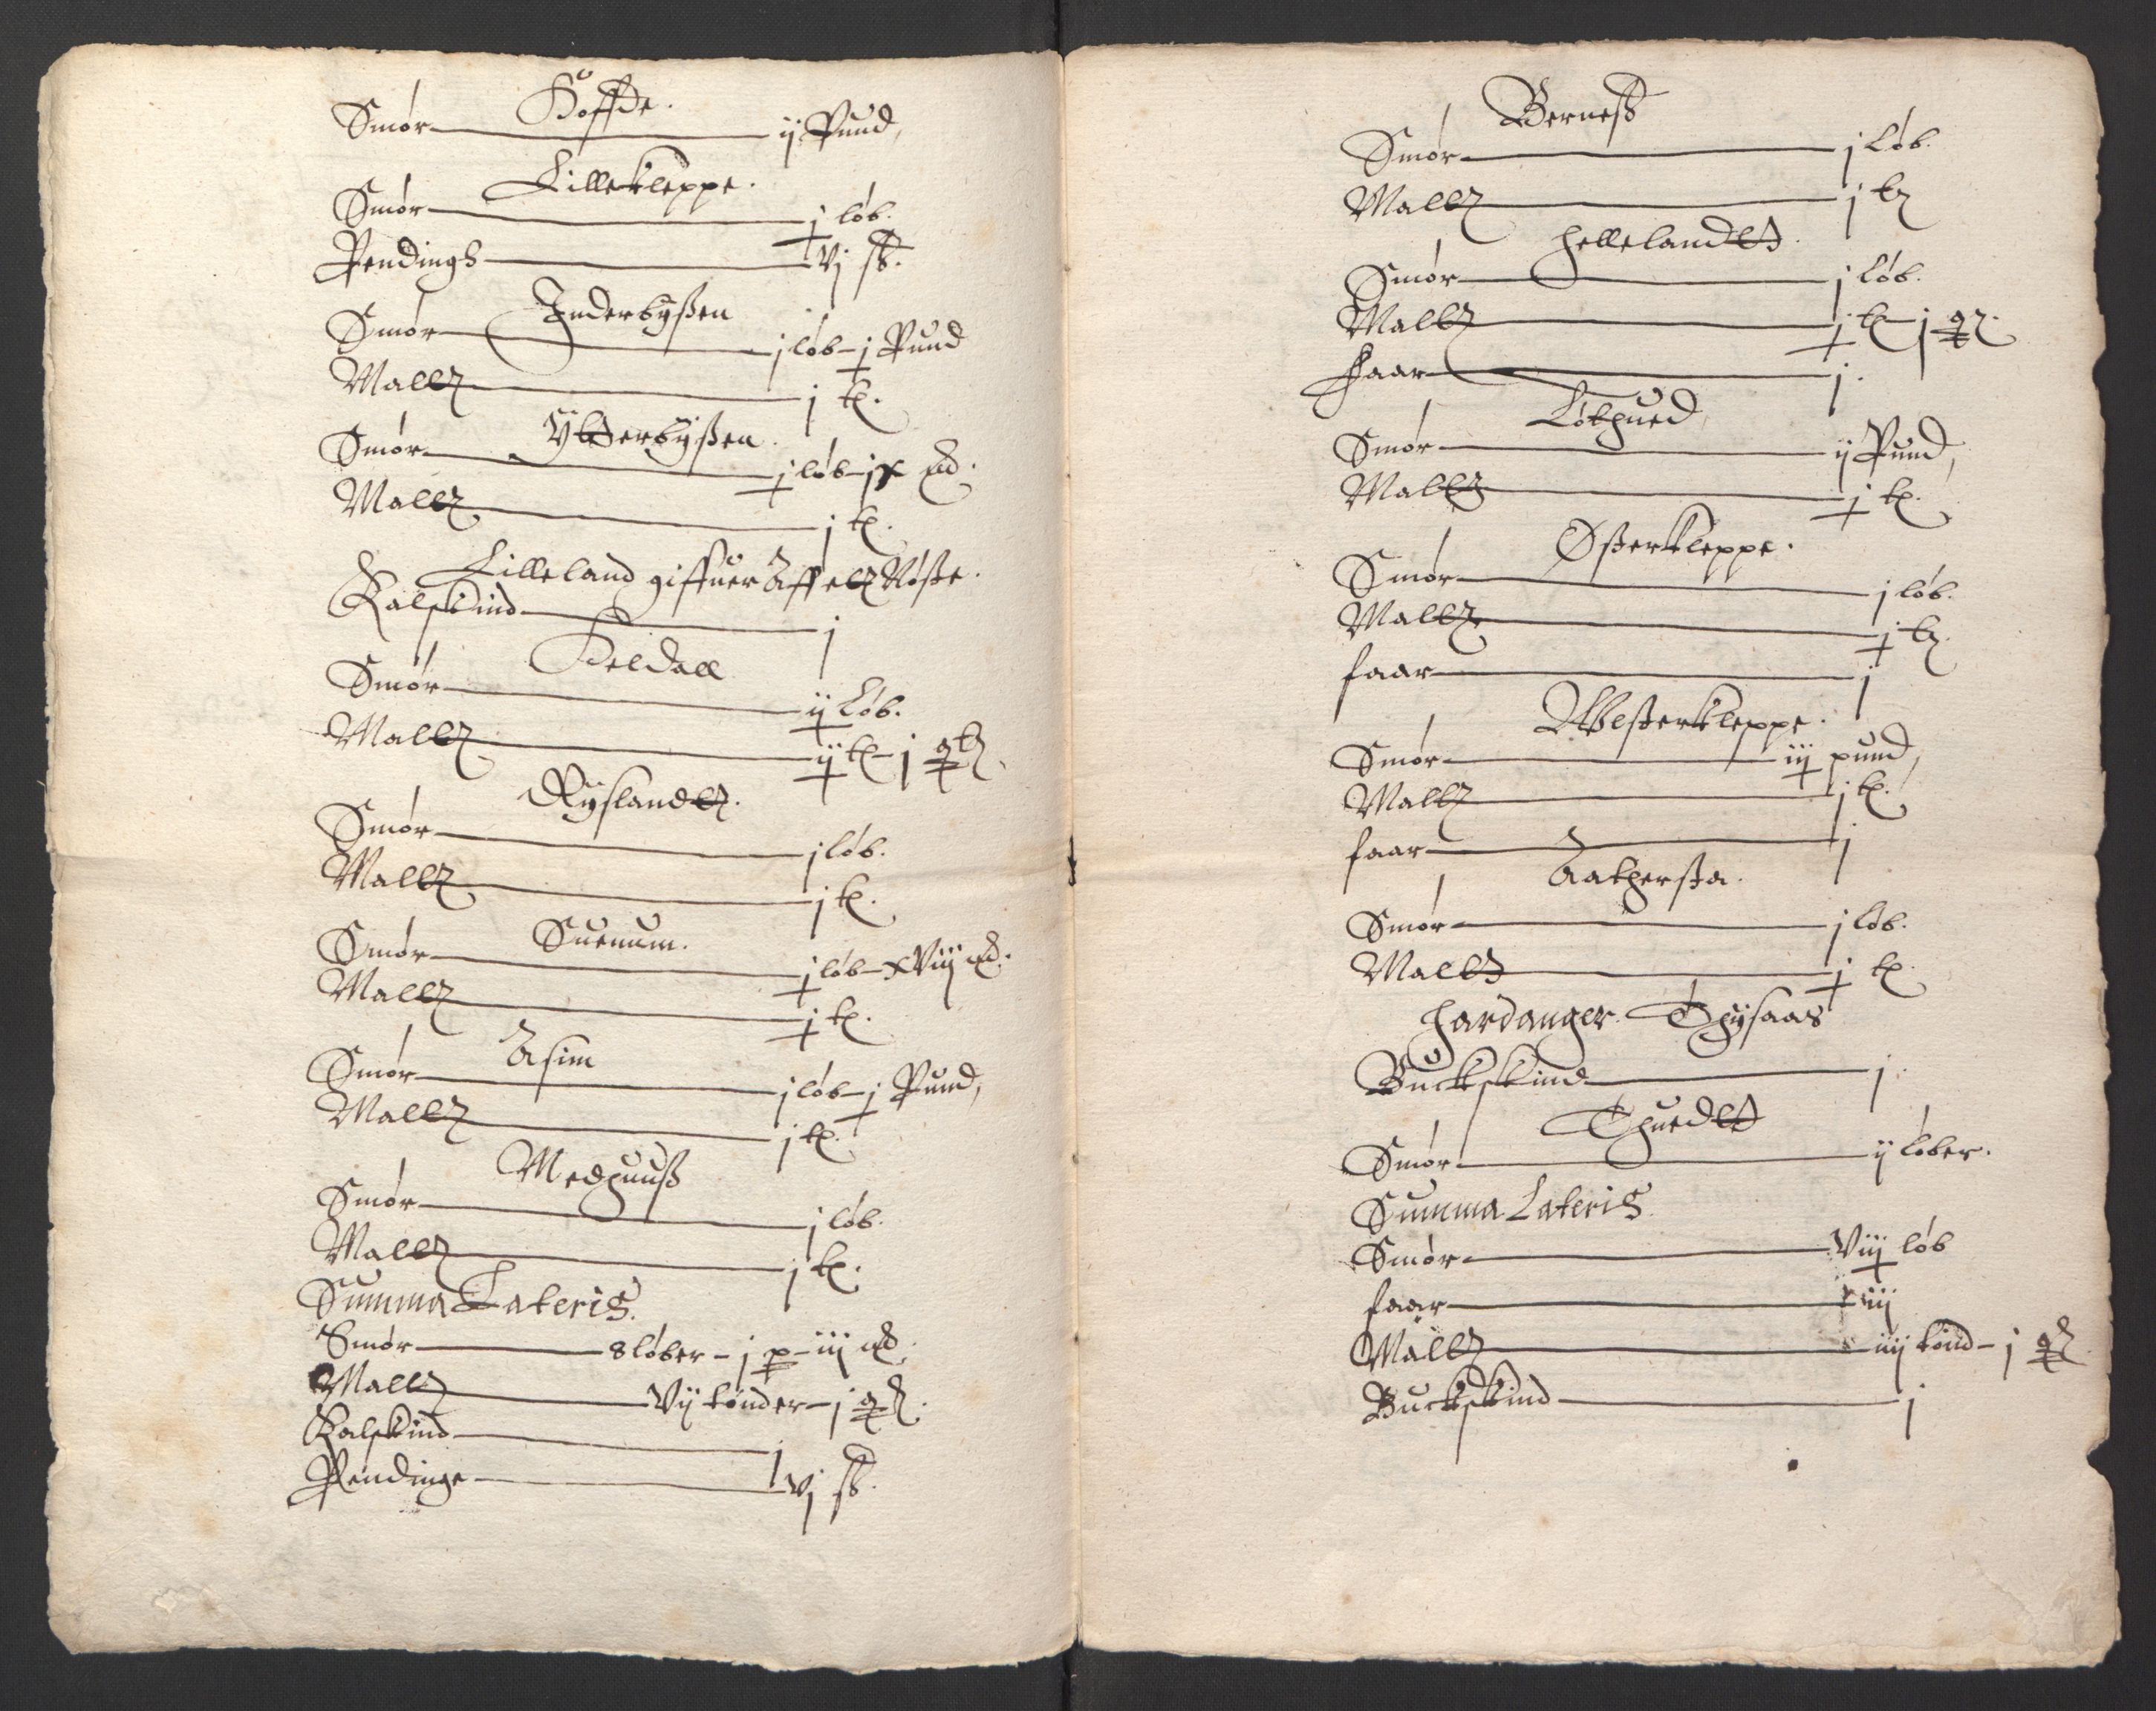 Hoffde.
Smør ij Pund,
Lillekleppe.
Smør j løb.
Pendings vj ß.
Inderbyßen
Smør j løb - j Pund
Maltt j tp.
Ytterbyßen.
Smør j løb - jx md.
Maltt j tp.
Lilleland giffuer Aff ett Nøste.
Kalfskind j
Heldall
Smør ij Løb.
Maltt ij tp - j qt
Ryslandtt.
Smør j løb.
Maltt j tp.
Suenum.
Smør j løb - xviij md.
Maltt j tp.
Asim
Smør j løb - j Pund,
Maltt j tp.
Medhuuß
Smør j løb.
Maltt j tp.
Summa Lateris.
Smør 8 løber - j p - iij md.
Maltt vij tønder - j qt.
Kalfskind j
Pendinge vj ß.
Berneß
Smør j Løb.
Maltt j tt
Hellelandtt.
Smør j Løb.
Maltt j tp j qt.
Faar j.
Løthued
Smør ij Pund,
Maltt j tp.
Østerkleppe.
Smør j løb.
Maltt j tt.
faar j
Westerkleppe.
Smør iij pund,
Maltt j tp.
faar j
Aathersta.
Smør j løb.
Maltt j tp.
Hardanger. Thysaas
Buckskind j.
Thuedtt
Smør ij Løber.
Summa Lateris.
Smør viij løb
faar iij
Maltt iiij tønd - j qt.
Buckskind j